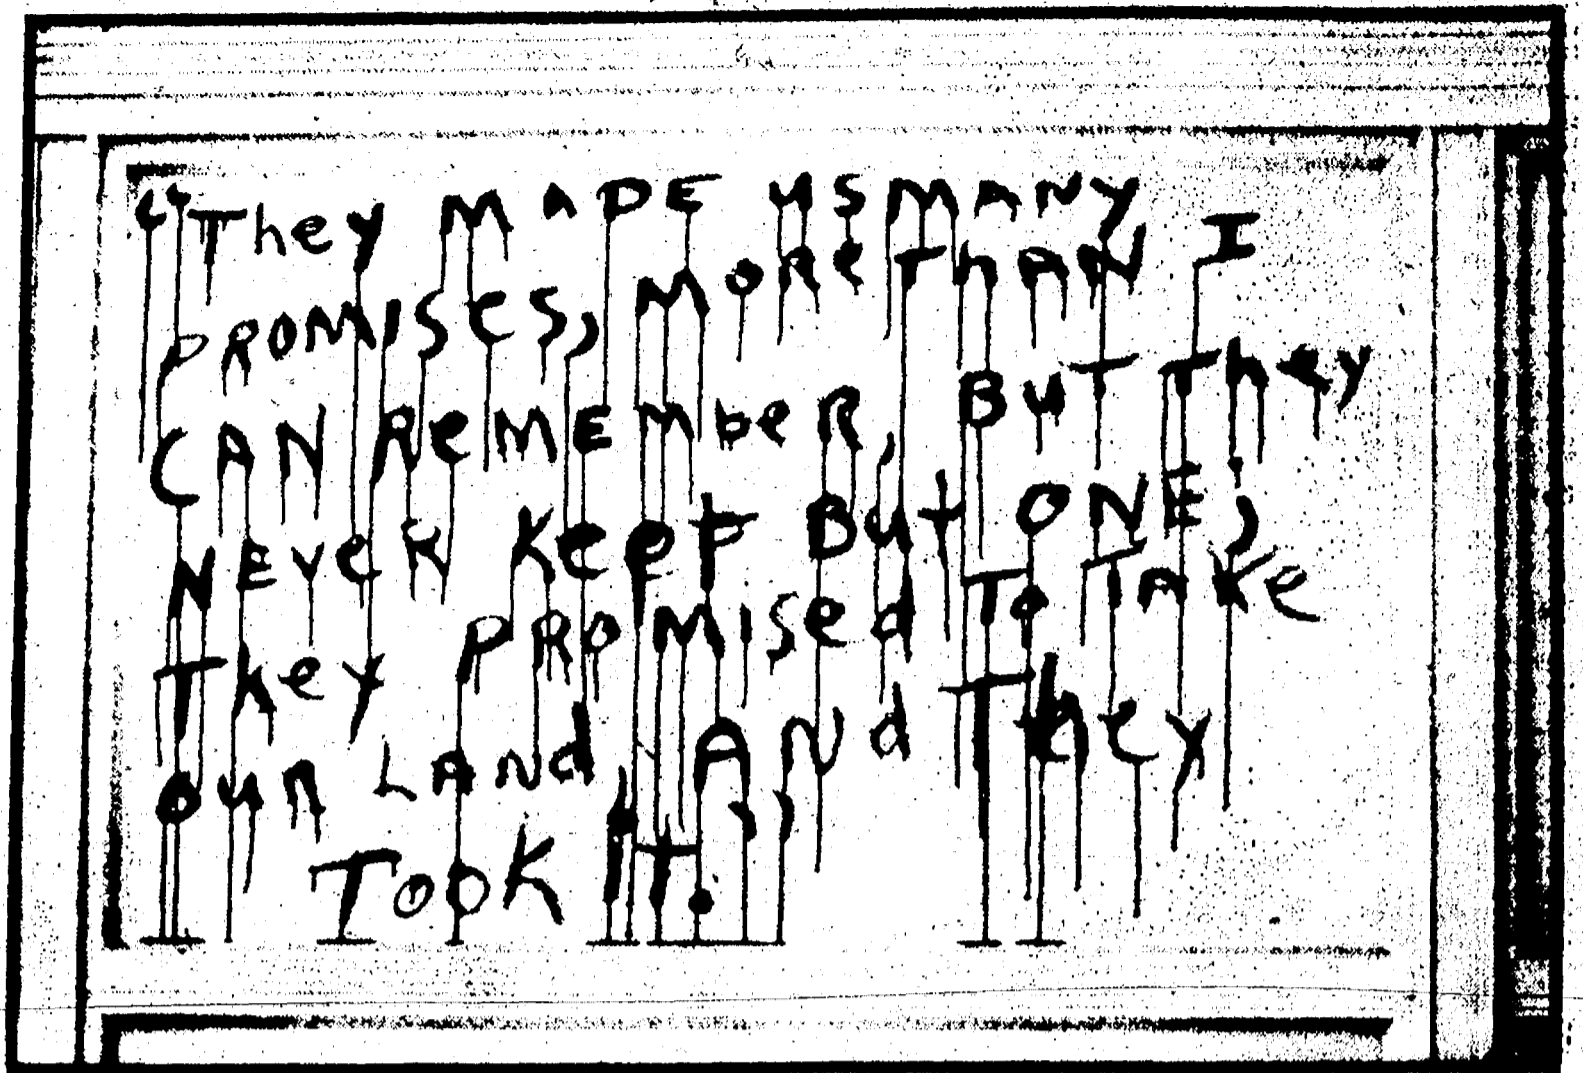 "They MADE us MANY
PROMISES, MORE THAN I
CAN REMEMBER, BUT They
NEVER KEEPT BUT ONE;
They PROMISed TO TAKE
OUR LAND, AND They
TOOK It."